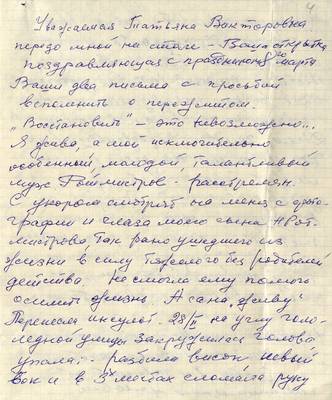 4
Уважаемая Татьяна Викторовна
передо мной на столе - Ваша открытка
поздравляющая с праздником 8го марта
Ваши два письма с просьбой
вспомнить о пережитом.
"Восстановить" - это невозможно...
Я жива, а мой исключительно
особенный молодой, талантливый
муж Ротмистров - расстрелян.
С укором смотрят на меня с фото-
графии и глаза моего сына Рот-
мистрова. Так рано ушедшего из
жизни в силу тяжелого без родителей
детства. Не смогла ему помочь
осилить жизнь. А сама "живу".
Перенесла инсульт. 28/II на углу голо-
ледной улицы закружилась голова
упала. разбила висок левый
бок и в 3х местах сломала руку